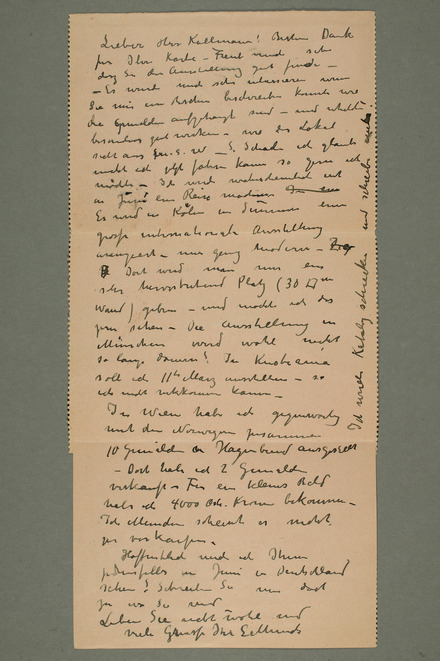 Lieber Herr Kollmann! Besten Dank
für Ihre Karte – Freut mich sehr
das Sie die Ausstellung gut finde –
– Es wurde mich sehr interessieren wenn
Sie mir ein bischen beschreiben kunnte wie
die Gemälden aufgehängt sind – und welche
besonders gut wirken – wie das Lokal
sieht aus u.s.w –
nicht ich jetzt fahren kann so gern ich
möchte – Ich werde wahrscheinlich erst
in Juni eine Reise machen
Es wird in Köln im Sommer eine
grosse internationale Ausstellung
arrangiert – nur ganz modern –
Dort wird man mir ein
sehr hervorstehend Platz (30 m
Wand) geben – und möchte ich das
gern sehen – Die Ausstellung in
München wird wohl nicht
so lange dauern? In Kristiania
soll ich 11te März ausstellen – so
ich nicht mitkommen kann –
In Wien habe ich gegenwärtig
mit den Norwegern zusammen
10 Gemälden in Hagenbund ausgestellt
– Dort habe ich 2 Gemälden
verkauft – Für ein kleines Bild
habe ich 4000 Kronen bekommen –
In München scheint es nicht
zu verkaufen –
Hoffentlich werde ich Ihnen
jedenfalls in Juni in Deutschland
sehen? Schreiben Sie mir doch
ja wo Sie sind
Leben Sie recht wohl und
viele Grüsse Ihr E Munch
Ich werde Katalog schicken und schreibe